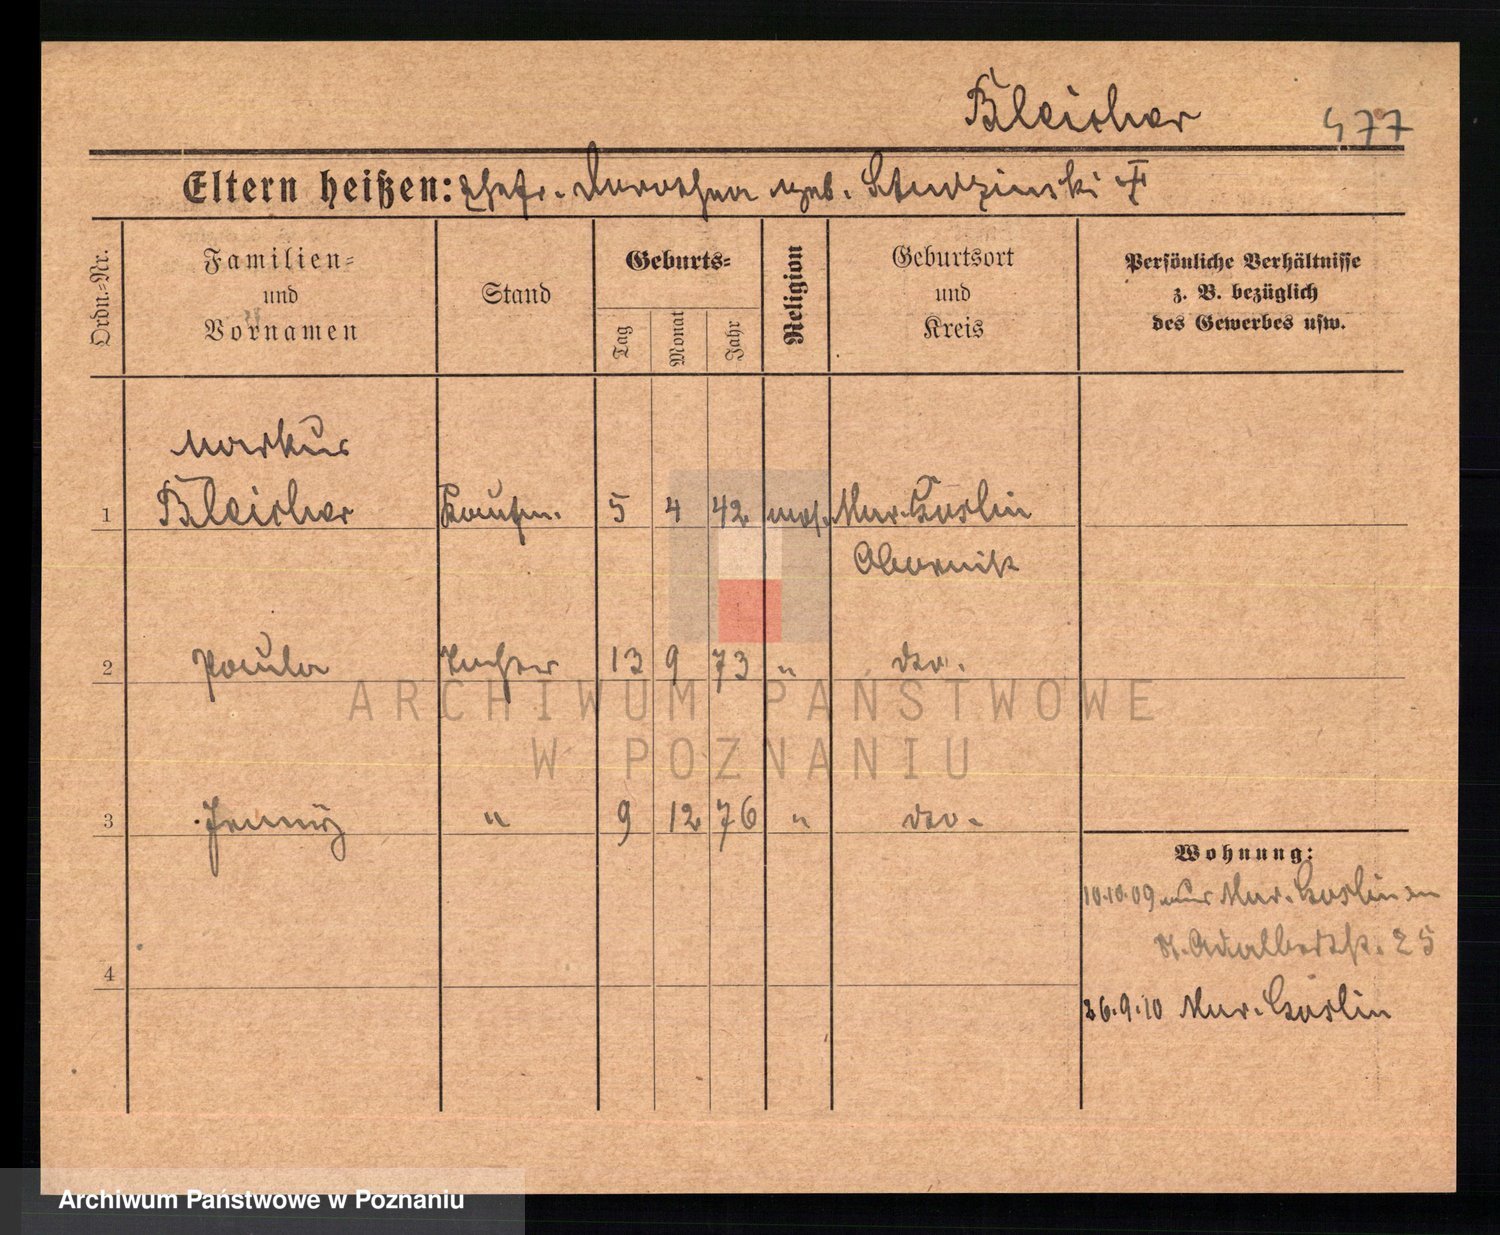 Bleicher 477
Eltern heißen: Ehefr. Dorothea geb. Studzinski †
Ordn.=Nr.
Familien=
und
Vornamen
Stand
Geburts=
Tag
Monat
Jahr
Religion
Geburtsort
und
Kreis
Persönliche Verhältnisse
z. B. bezüglich
des Gewerbes usw.
Markus
1 Bleicher Kaufm. 5 4 42 mos. Mur. Goslin
Obornik
2 Paula Tochter 13 9 73 " dto.
ARCHIWUM PAŃSTWOWE
W POZNANIU
3 Jenny " 9 12 76 " dto.
Wohnung:
10.10.09 aus Mur. Goslin
St. Adalbertstr. 25
4
26.9.10 Mur. Goslin
Archiwum Państwowe w Poznaniu